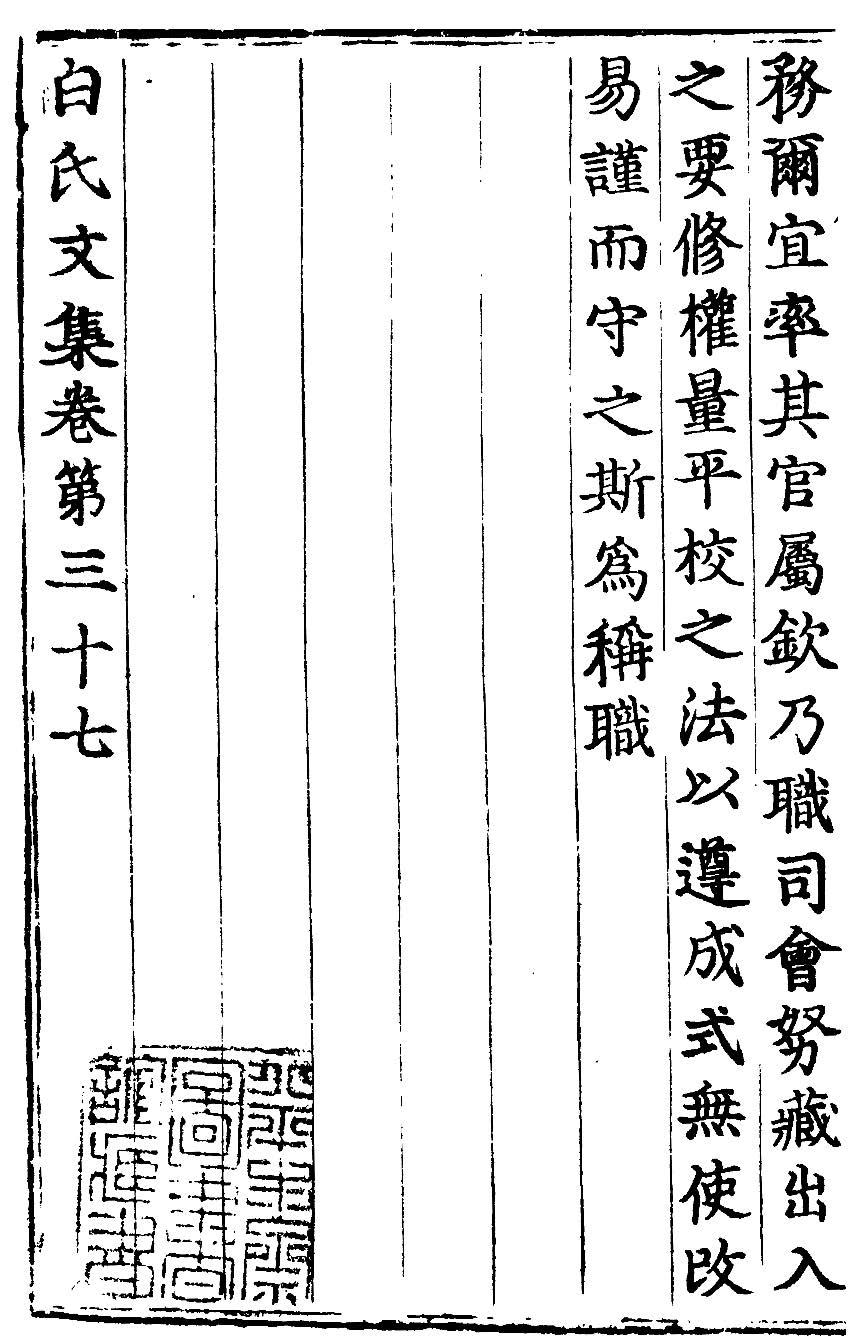 務爾宜率其官屬欽乃職司會帑藏出入
之要修權量平校之法以遵成式無使改
易謹而守之斯爲稱職
白氏文集卷第三十七